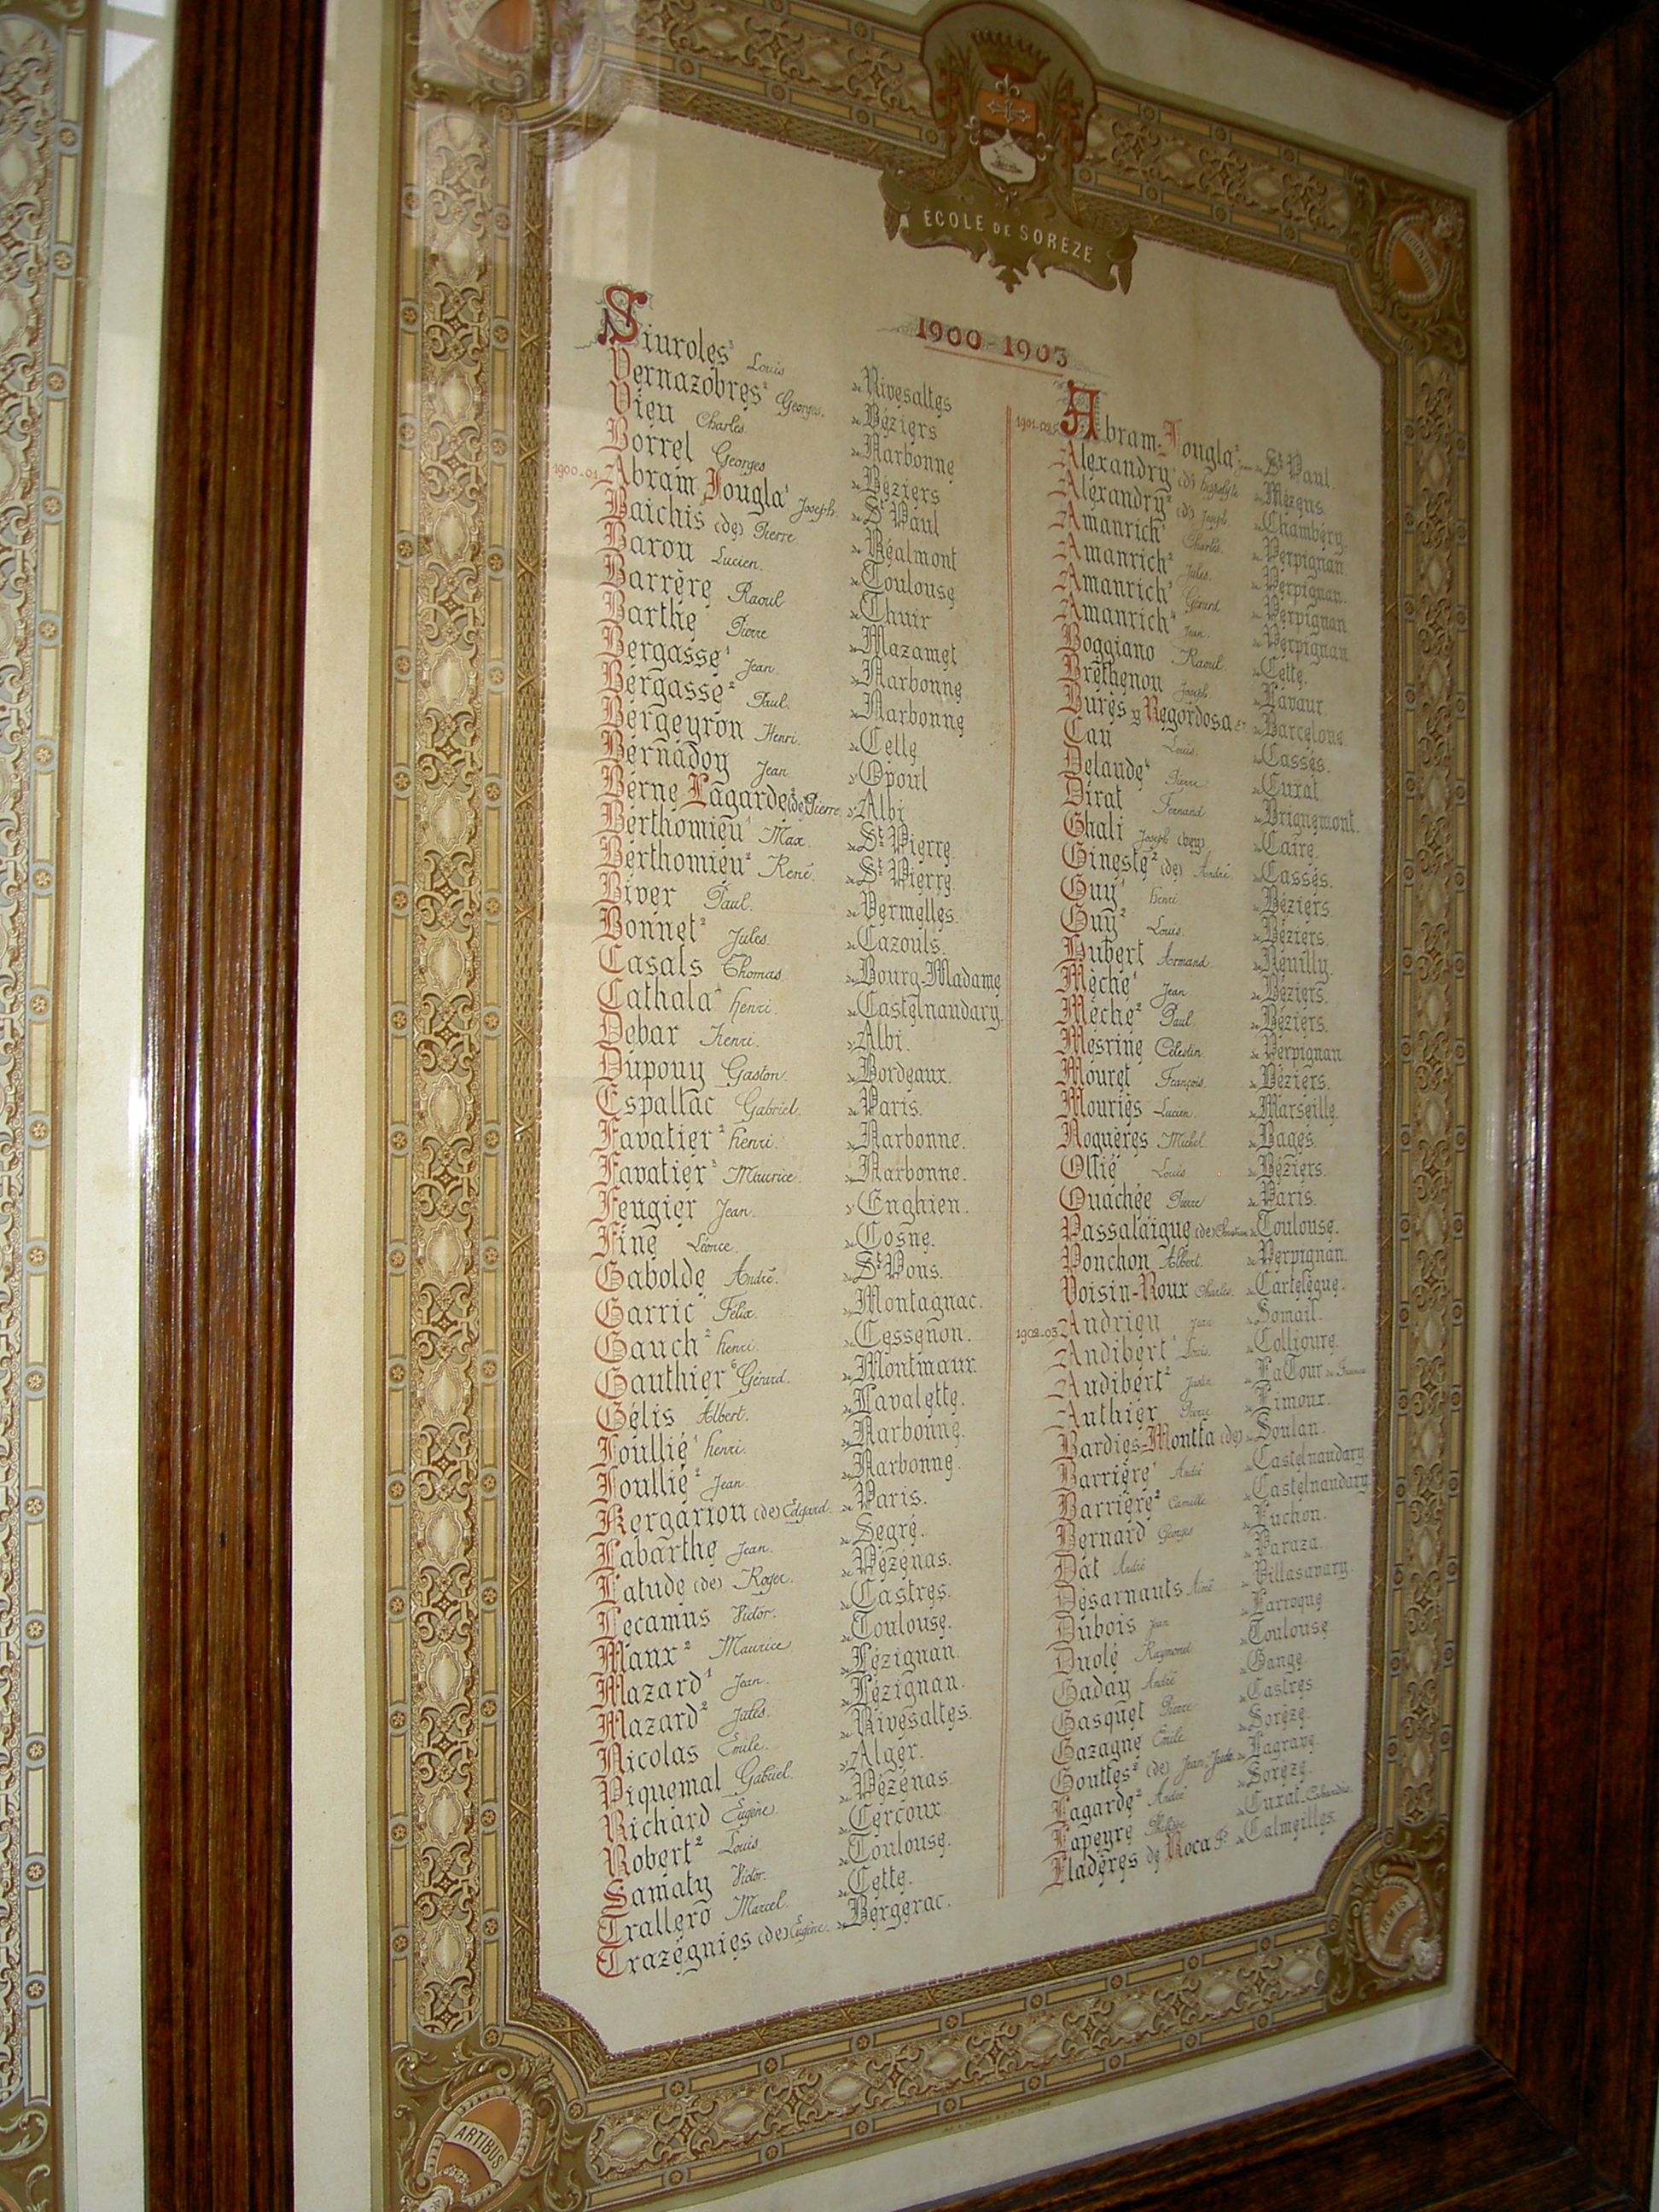 ECOLE DE SORÈZE
1900-1903
Siuroles² Louis de Rivesaltes
Vernazobres² Georges. de Béziers
Vieu Charles de Narbonne
Borrel Georges de Béziers
1900-01 Abram Jougla¹ Joseph. de St Paul
Baichis (de) Pierre de Réalmont
Barou Lucien. de Toulouse
Barrère Raoul de Thuir
Barthe Pierre de Mazamet
Bergasse¹ Jean. de Narbonne
Bergasse² Paul. de Narbonne
Bergeyron Henri. de Cette
Bernadoy Jean d'Opoul
Berne Lagarde (de) Pierre d'Albi
Berthomieu¹ Max. de St Pierre
Berthomieu² René. de St Pierre
Biver Paul. de Vermelles.
Bonnet² Jules. de Cazouls.
Casals Thomas. de Bourg-Madame
Cathala² henri. de Castelnaudary.
Debar Henri. d'Albi.
Dupouy Gaston. de Bordeaux.
Espallac Gabriel. de Paris.
Favatier² henri. de Narbonne.
Favatier³ Maurice. de Narbonne.
Feugier Jean. d'Enghien.
Fine Léonce. de Cosne.
Gabolde André. de St Pons.
Garric Félix. de Montagnac.
Gauch² henri. de Cessenon.
Gauthier⁶ Gérard. de Montmaur.
Gélis Albert. de Lavalette.
Joullié¹ henri. de Narbonne.
Joullié² Jean. de Narbonne.
Kergariou (de) Edgard. de Paris.
Labarthe Jean. de Segré.
Latude (de) Roger. de Pézenas.
Lecamus Victor. de Castres.
Maux² Maurice de Toulouse.
Mazard¹ Jean. de Lézignan.
Mazard² Jules. de Lézignan.
Nicolas Émile. de Rivesaltes.
Piquemal Gabriel. d'Alger.
Richard Eugène. de Pézenas.
Robert² Louis. de Cercoux.
Samaty Victor. de Toulouse.
Trallero Marcel. de Cette.
Trazégnies (de) Eugène. de Bergerac.
1901-02 Abram-Jougla² de St Paul.
Alexandry¹ (d') hippolyte de Mézens
Alexandry² (d') Joseph de Chambéry
Amanrich¹ Charles. de Perpignan
Amanrich² Jules. de Perpignan.
Amanrich³ Gérard de Perpignan
Amanrich⁴ Jean. de Perpignan
Boggiano Raoul. de Cette.
Brethenou Joseph de Lavaur
Bures y Regordosa de Barcelone.
Cau Louis. de Cassés.
Delaude⁴ Pierre de Cuxal
Dirat Fernand de Brignemont.
Ghali Joseph (bey) du Caire.
Gineste² (de) André. de Cassés.
Guy¹ henri. de Béziers
Guy² Louis. de Béziers.
Hubert Armand. de Neuilly.
Mèche¹ Jean de Béziers.
Mèche² Paul. de Béziers.
Mesrine Célestin. de Perpignan
Mouret François. de Béziers.
Mouriès Lucien. de Marseille.
Noguères Michel. de Bages.
Ollié Louis de Béziers.
Ouachée Pierre de Paris.
Passalaigue (de) Christian de Toulouse.
Ponchon Albert. de Perpignan.
Voisin-Roux Charles. de Cartelègue.
1902-03 Andrieu Jean de Somail.
Audibert¹ Louis. de Collioure.
Audibert² Justin de La Tour de France
Authier Pierre de Limoux.
Bardies-Montfa (de) de Soulan.
Barrière¹ André de Castelnaudary
Barrière² Camille de Castelnaudary
Bernard Georges de Luchon.
Dat André de Paraza.
Désarnauts Aimé de Villasavary.
Dubois Jean de Larroque
Duolé Raymond de Toulouse
Gaday André de Gange.
Gasquet Pierre de Castres
Gazagne Émile de Sorèze.
Gouttes² (de) Jean de Lagrave.
Lagarde² André de Sorèze.
Lapeyre Philippe de Cuxal-Cabardès.
Lladères de Roca F. de Calmeilles.
ARTIBUS
ARMIS